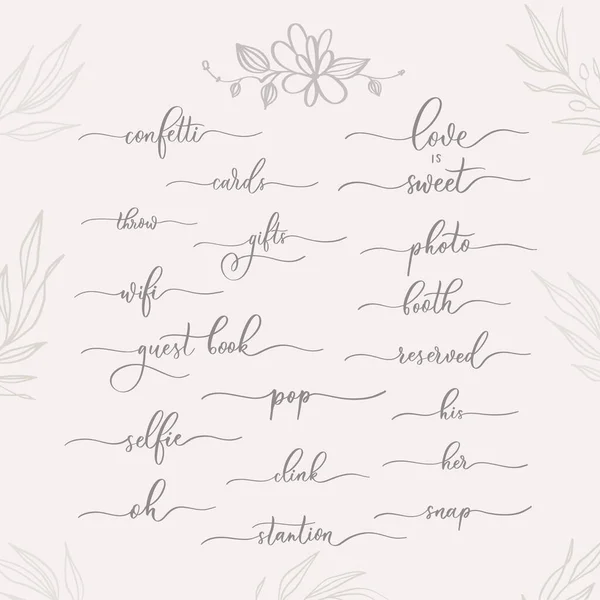 confetti
cards
throw
gifts
wifi
guest book
pop
selfie
clink
oh
stantion
love
IS
sweet
photo
booth
reserved
his
her
snap